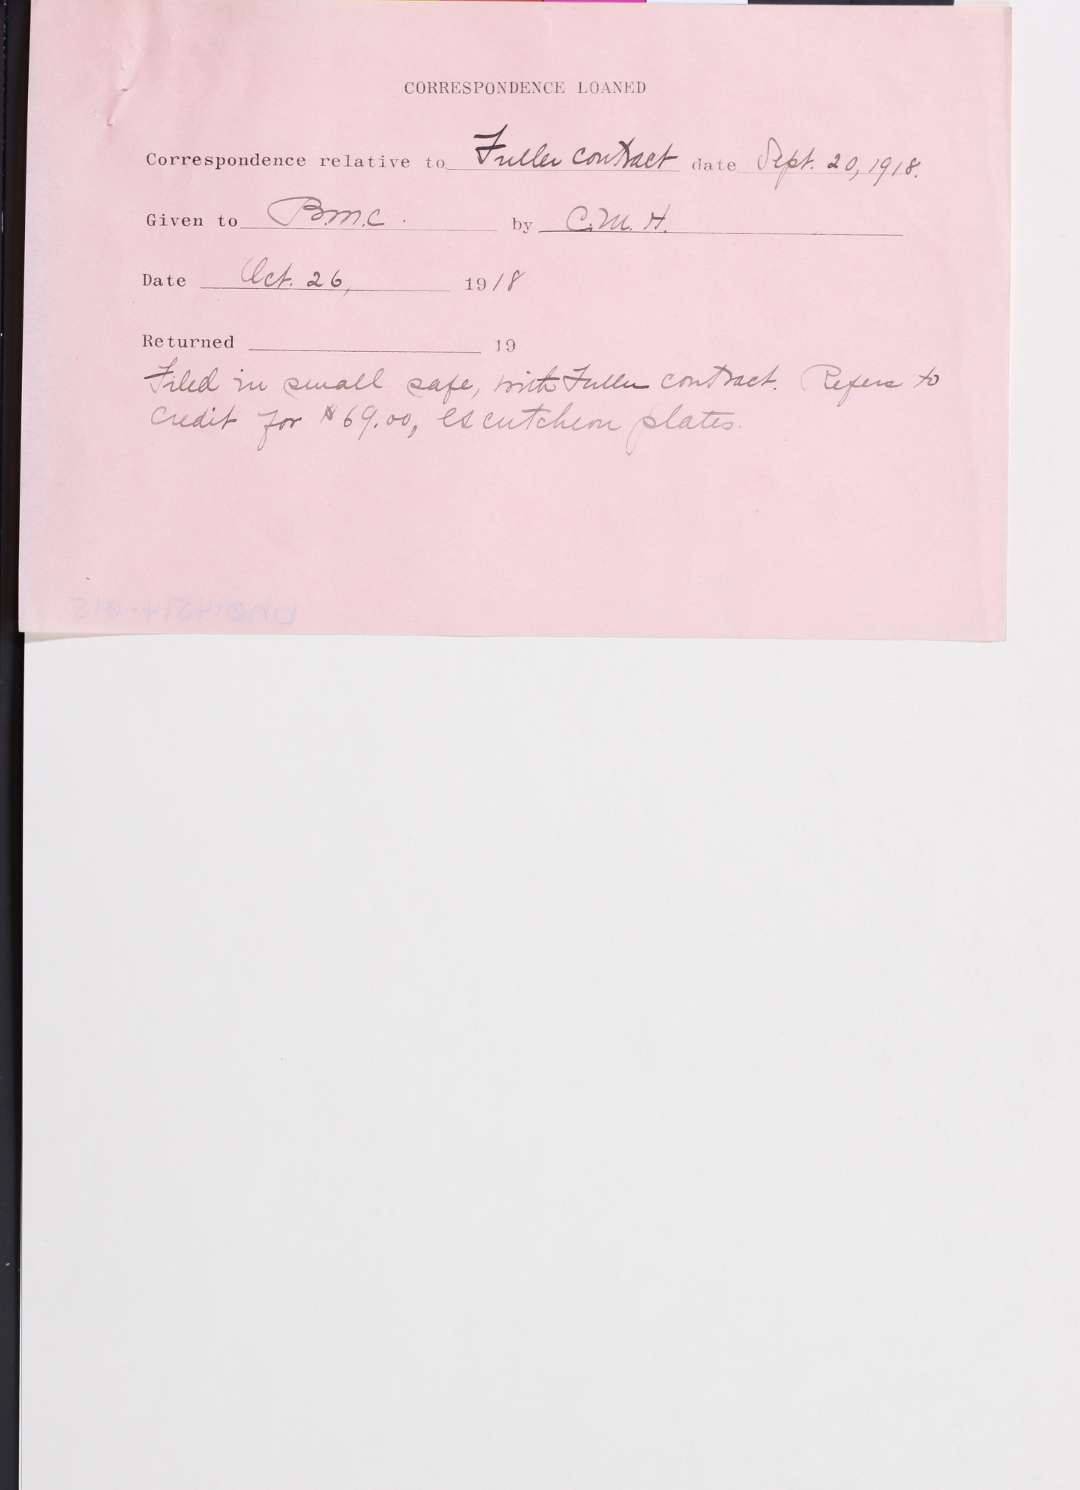 CORRESPONDENCE LOANED
Correspondence relative to Fuller contract date Sept. 20, 1918.
Given to B.M.C. by C.M.H.
Date Oct. 26, 1918
Returned 19
Filed in small safe, with Fuller contract. Refers to
credit for $69.00, escutcheon plates.